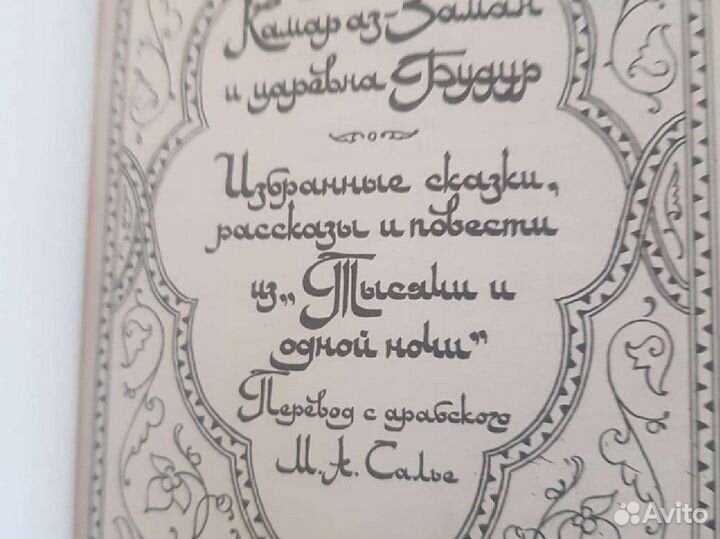 Камар аз-Заман
и царевна Будур
Избранные сказки,
рассказы и повести
из „Тысячи и
одной ночи“
Перевод с арабского
М. А. Салье
Avito